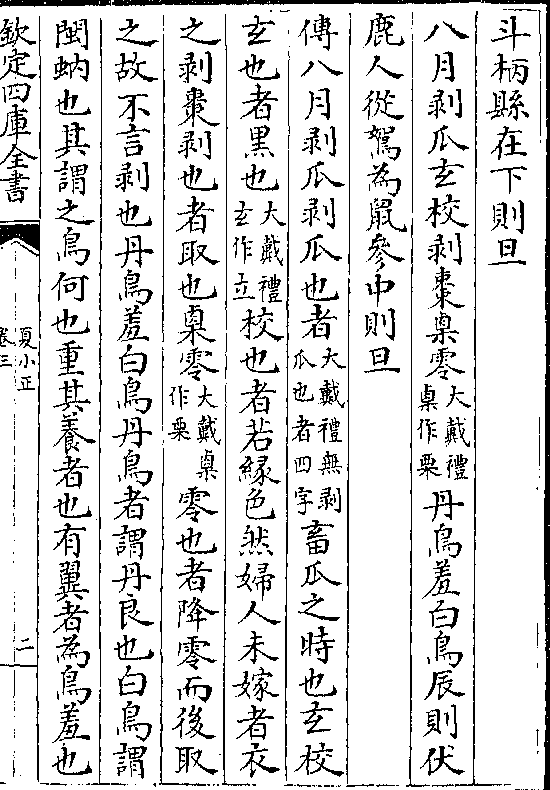 斗柄縣在下則旦
八月剥瓜玄校剥棗㮚零大戴禮㮚作栗丹鳥羞白鳥辰則伏
鹿人從鴽為鼠參中則旦
傳八月剥瓜剥瓜也者大戴禮無剥瓜也者四字畜瓜之時也玄校
玄也者黒也大戴禮玄作立校也者若緑色然婦人未嫁者衣
之剥棗剥也者取也㮚零大戴㮚作栗零也者降零而後取
之故不言剥也丹鳥羞白鳥丹鳥者謂丹良也白鳥謂
閩蚋也其謂之鳥何也重其養者也有翼者為鳥羞也
欽定四庫全書
夏小正
卷三
二